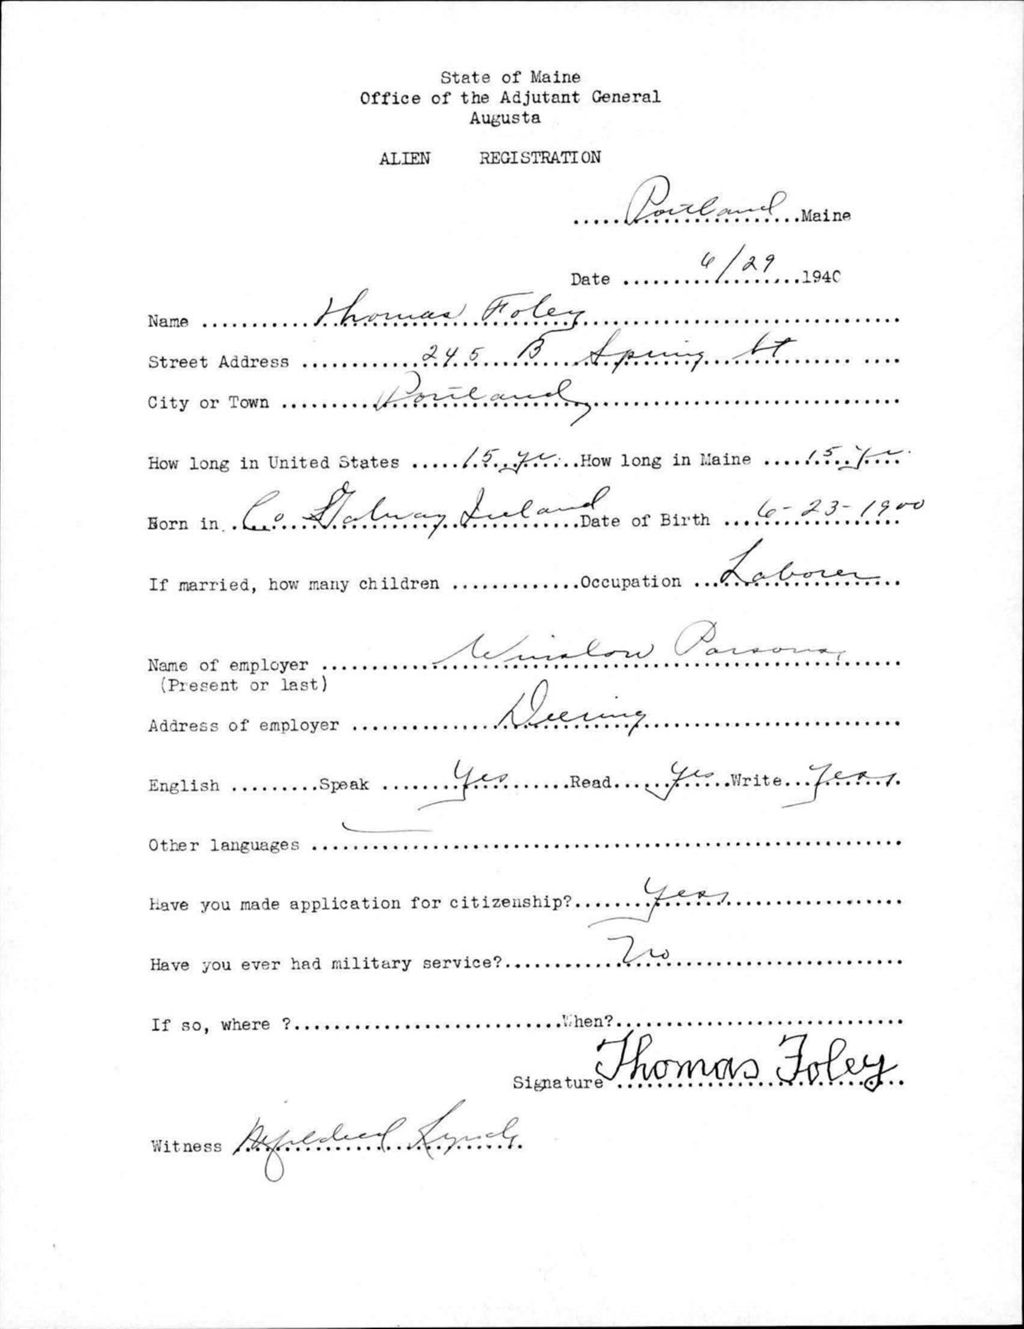 State of Maine
Office of the Adjutant General
Augusta
ALIEN REGISTRATION
.....Portland..Maine
Date ......6/29......1940
Name ...........Thomas Foley...........
Street Address ............245 B Spring St...........
City or Town ..........Portland...........
How long in United States .....15 yr...How long in Maine ....15 yr....
Born in..Co Galway Ireland.....Date of Birth ....6-23-1900
If married, how many children .............Occupation ...Laborer..
Name of employer ...........Winslow Parsons......
(Present or last)
Address of employer ..............Deering...........
English .........Speak ........Yes.......Read.....Yes....Write...Yes...
Other languages ...........
Have you made application for citizenship?........Yes...........
Have you ever had military service?...........No...........
If so, where ?...........................When?...........................
Signature Thomas Foley
Witness Mildred Lynch